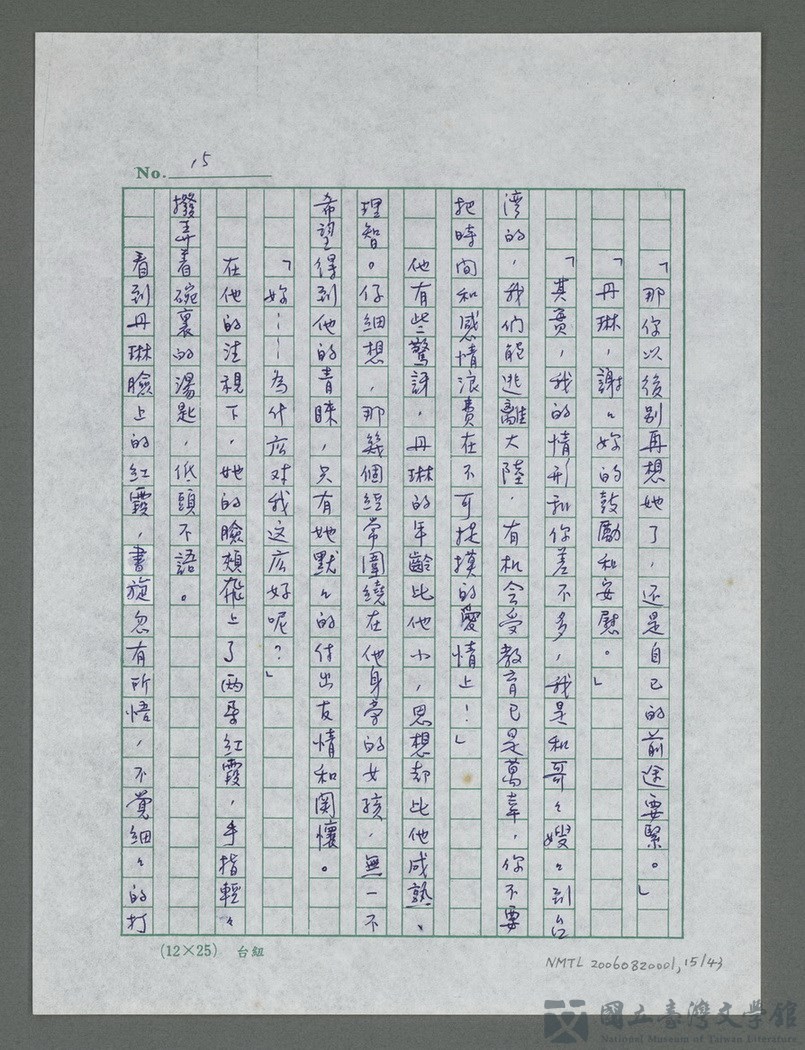 No. 15
「那你以後别再想她了，还是自己的前途要緊。」
「丹琳，謝々妳的鼓勵和安慰。」
「其實，我的情形和你差不多，我是和哥々嫂々到台
湾的，我们能逃離大陸，有机会受教育已是萬幸，你不要
把時间和感情浪費在不可捉摸的愛情上！」
他有些驚訝，丹琳的年齡比他小，思想却比他成熟、
理智。仔細想，那幾個經常圍繞在他身旁的女孩，無一不
希望得到他的青睞，只有她默々的付出友情和関懷。
「妳……為什庅对我这庅好呢？」
在他的注視下，她的臉頰飛上了两朵紅霞，手指輕々
撥弄着碗裏的湯匙，低頭不語。
看到丹琳臉上的紅霞，書旋忽有所悟，不覺細々的打
(12×25) 台紐
NMTL 20060820001, 15/43
國立臺灣文學館
National Museum of Taiwan Literature